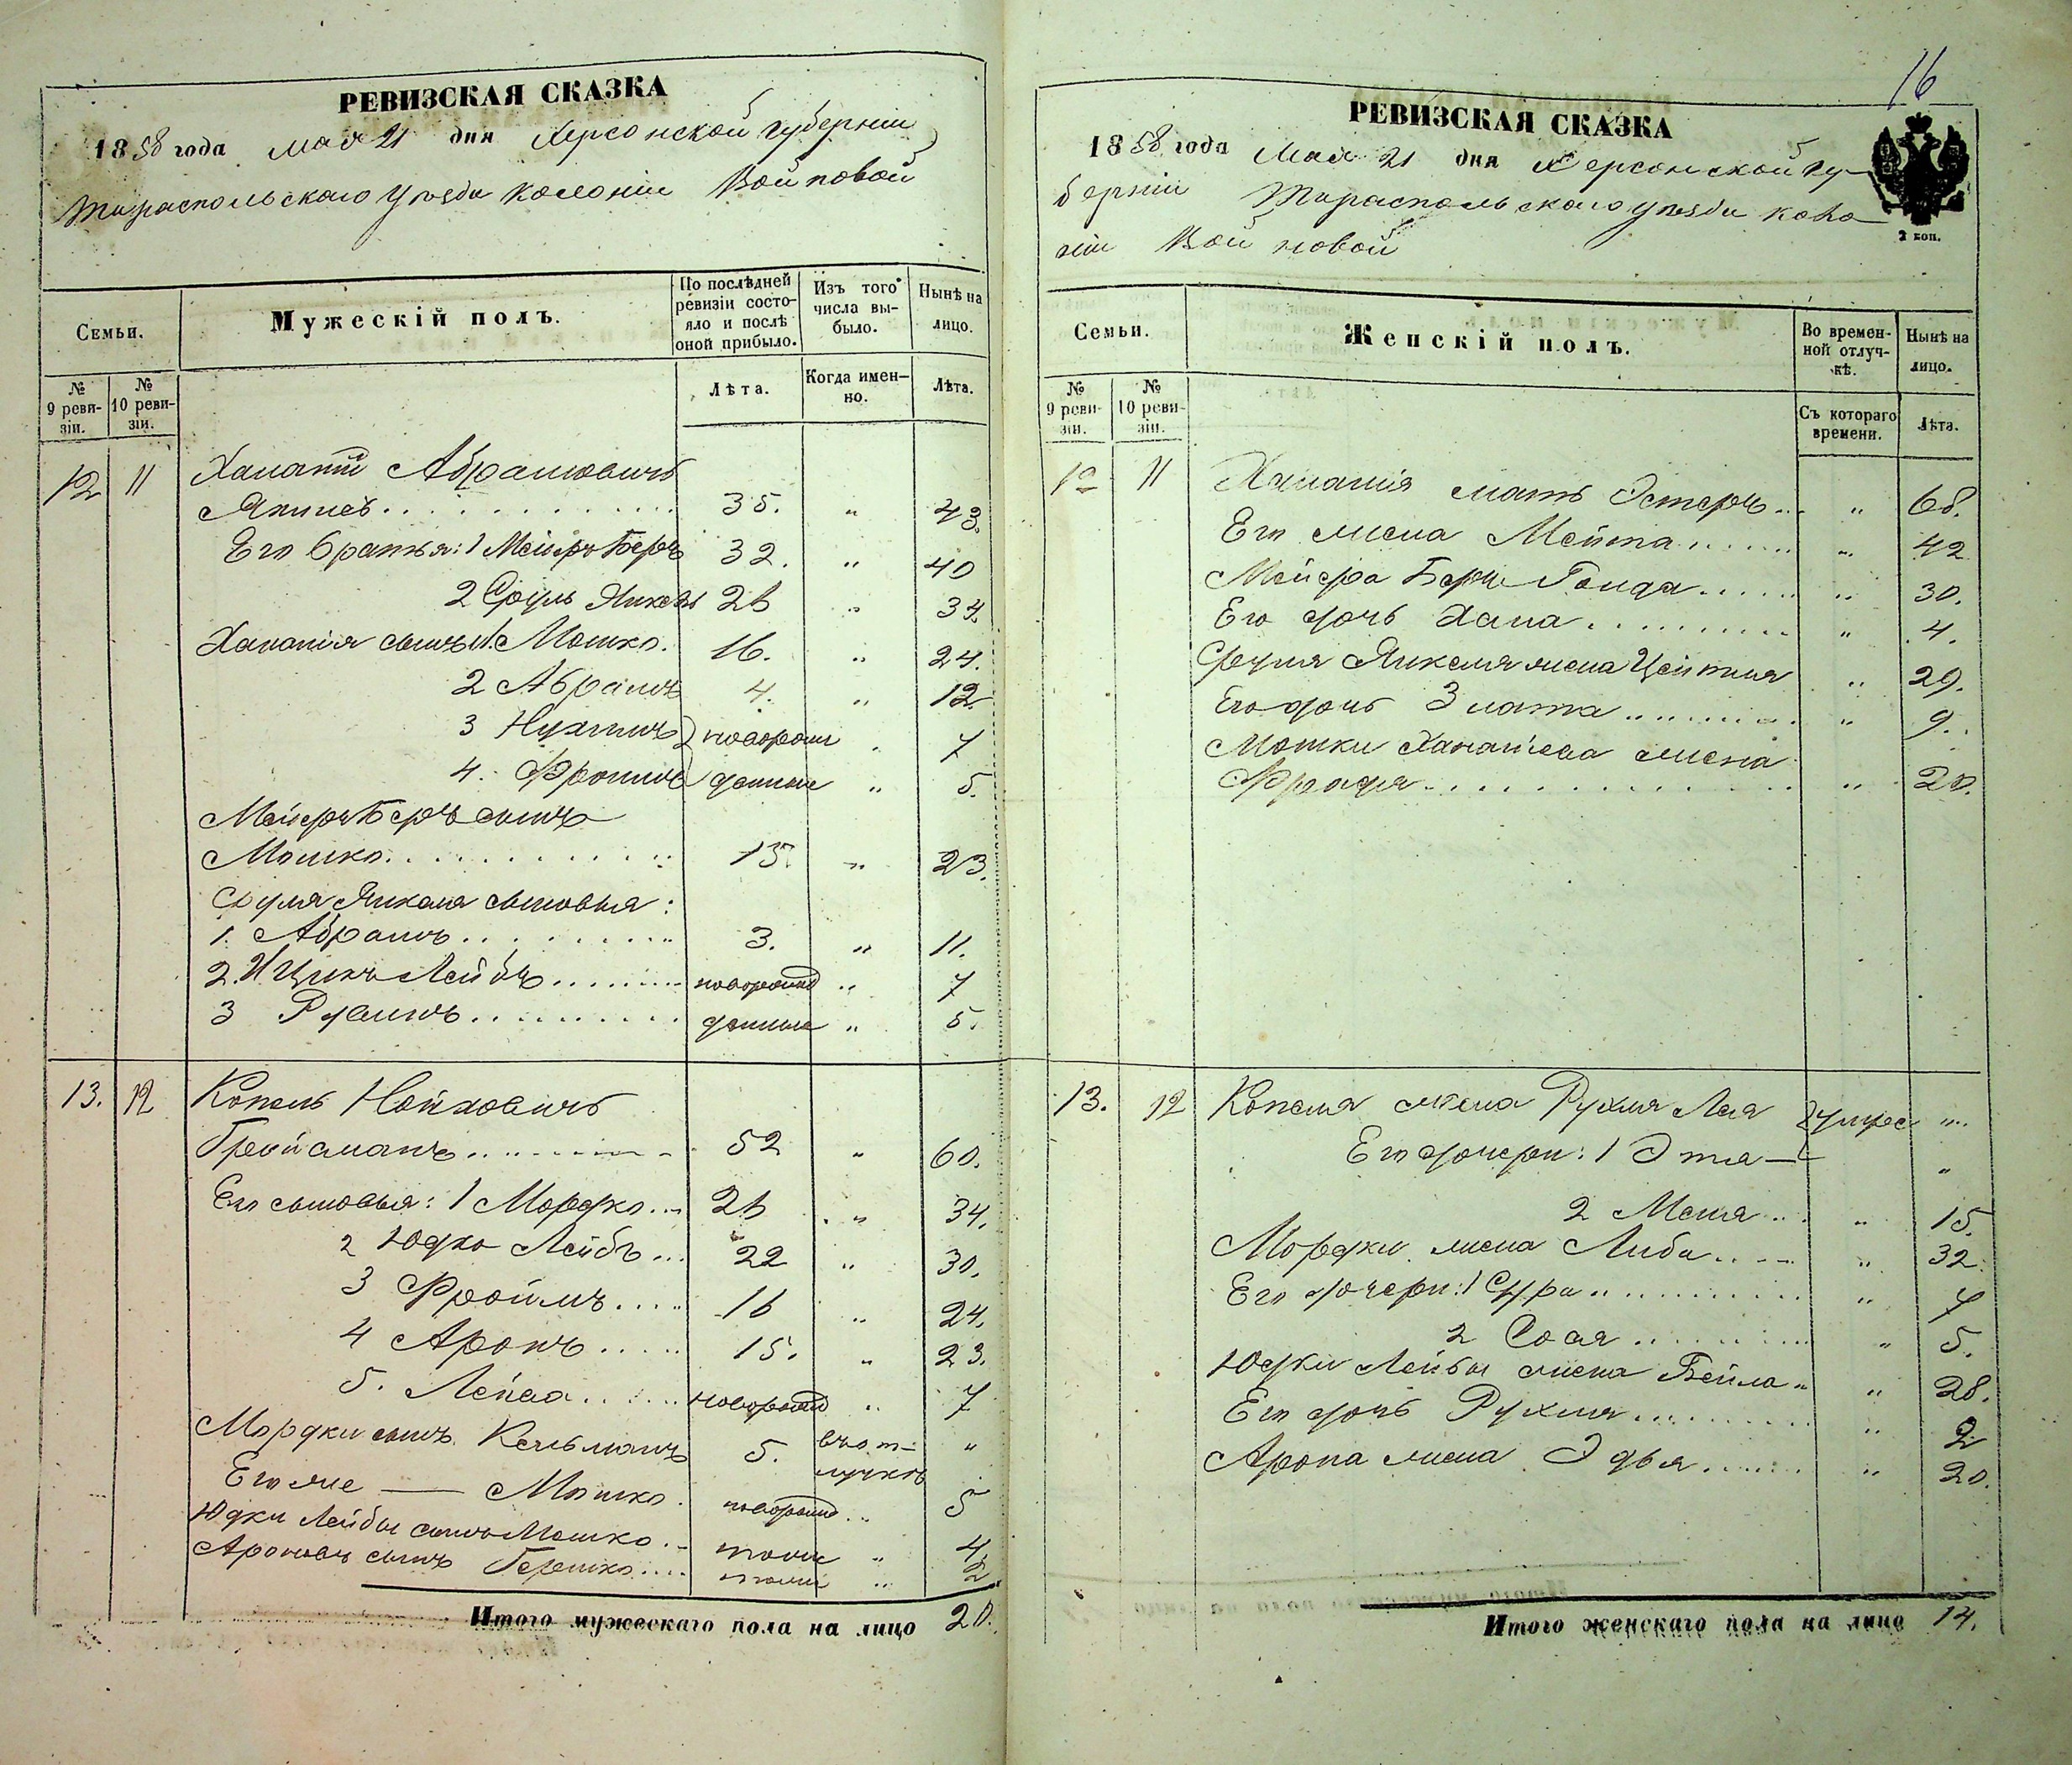 РЕВИЗСКАЯ СКАЗКА
1858 года мая 21 дня Херсонской губерніи
Тираспольскаго уѣзда колоніи
Семьи.
Мужескій полъ.
По послѣдней ревизіи состояло и послѣ оной прибыло.
Изъ того числа выбыло.
Нынѣ на лицо.
№ 9 ревизіи.
№ 10 ревизіи.
Лѣта.
Когда именно.
Лѣта.
12 11 Абрамовичъ
35. " 43.
Его братья: 1 Мейеръ Беръ 32. " 40
2 Сруль 26 " 34.
Хананія сынъ 1. Мошко. 16. " 24.
2 Абрамъ 4. " 12.
3 Нухимъ новорож " 7
4. Фроимъ денные " 5.
Мейеръ Беръ сынъ
Мошко 15. " 23.
Сруля Янкеля сыновья:
1. Абрамъ 3. " 11.
2. Ицикъ Лейбъ новорож " 7
3 Рувинъ денные " 5.
13. 12 Копель
Грейсманъ 52 " 60.
Его сыновья: 1 Мордко 26 " 34.
2 Юдко Лейбъ 22 " 30.
3 Фроимъ 16 " 24.
4 Аронъ 15. " 23.
5. Лейва новорожд " 7
Мордки сынъ Кельманъ 5. въ от- "
лучкѣ
Его же — Мошко. новорожд " 5
Юдки Лейбы сынъ Мошко тоже " 4.
Ароновъ сынъ Гершко " 2
Итого мужескаго пола на лицо 20.
16
РЕВИЗСКАЯ СКАЗКА
1858 года Мая 21 дня Херсонской гу-
берніи Тираспольскаго уѣзда коло
ніи
2 коп.
Семьи.
Женскій полъ.
Во временной отлучкѣ.
Нынѣ на лицо.
№ 9 ревизіи.
№ 10 ревизіи.
Съ котораго времени.
Лѣта.
12 11 Хананія мать Эстеръ " 68.
Его жена " 42
Мейера Бера " 30.
Его дочь Хана " 4.
Сруля Янкеля жена " 29.
Его дочь Злата " 9.
Мошки жена
" 20.
13. 12 Копеля жена Рухля Лея умре "
Его дочери: 1 Этя "
2 Меня " 15.
Мордки жена Либа " 32.
Его дочери: 1 Сура " 7
2 Сося " 5.
Юдки Лейбы жена Бейла " 28.
Его дочь Рухля " 2
Арона жена Эдья " 20.
Итого женскаго пола на лицо 14.